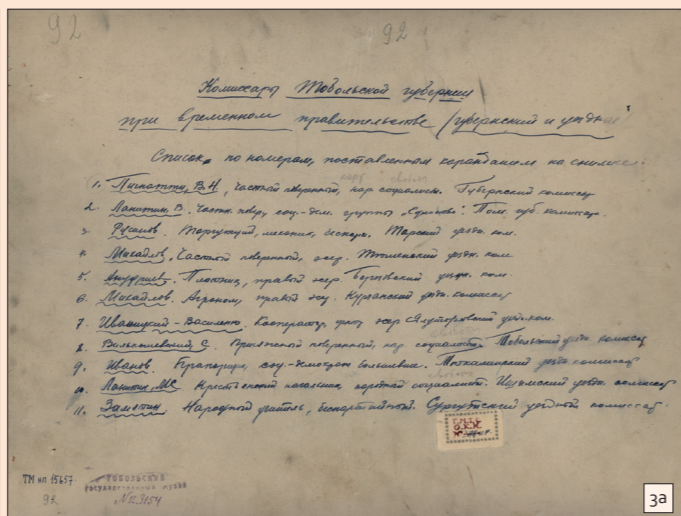 92 92
Комиссары Тобольской губернии
при временном правительстве (губернский и уездные
Список по номерам, поставленным карандашом на снимке:
1. Пигнатти, В.Н., частный поверенный, нар. социалист. Губернский комиссар
2. Ланитин, В. Частн. повер., соц.-дем. группы „Единство“. Пом. губ. комиссар.
3. Русанов. Торгующий, мещанин, беспарт. Тарский уездн. ком.
4. Мисадлов, Частный поверенный, Тюменский уездн. ком.
5. Плотник, правый эсер. Березовский уездн. ком.
6. Мисадлов. Агроном, правый эсер. Курганский уездн. комиссар
7. Иваницкий-Василенко. Кооператор, эсер Ялуторовский уезд. ком.
8. С. Присяжный поверенный, нар. социалист. Тобольский уездн. комиссар
9. Иванов. Прапорщик, соц-демократ большевик. Тюкалинский уездн. комиссар
10. Ланитин, М.С. Крестьянский начальник, народный социалист. Ишимский уездн. комиссар
11. Замятин. Народный учитель, беспартийный. Сургутский уездный комиссар.
ТМ кп 15657
92
ТОБОЛЬСКИЙ
государственный музей
3а